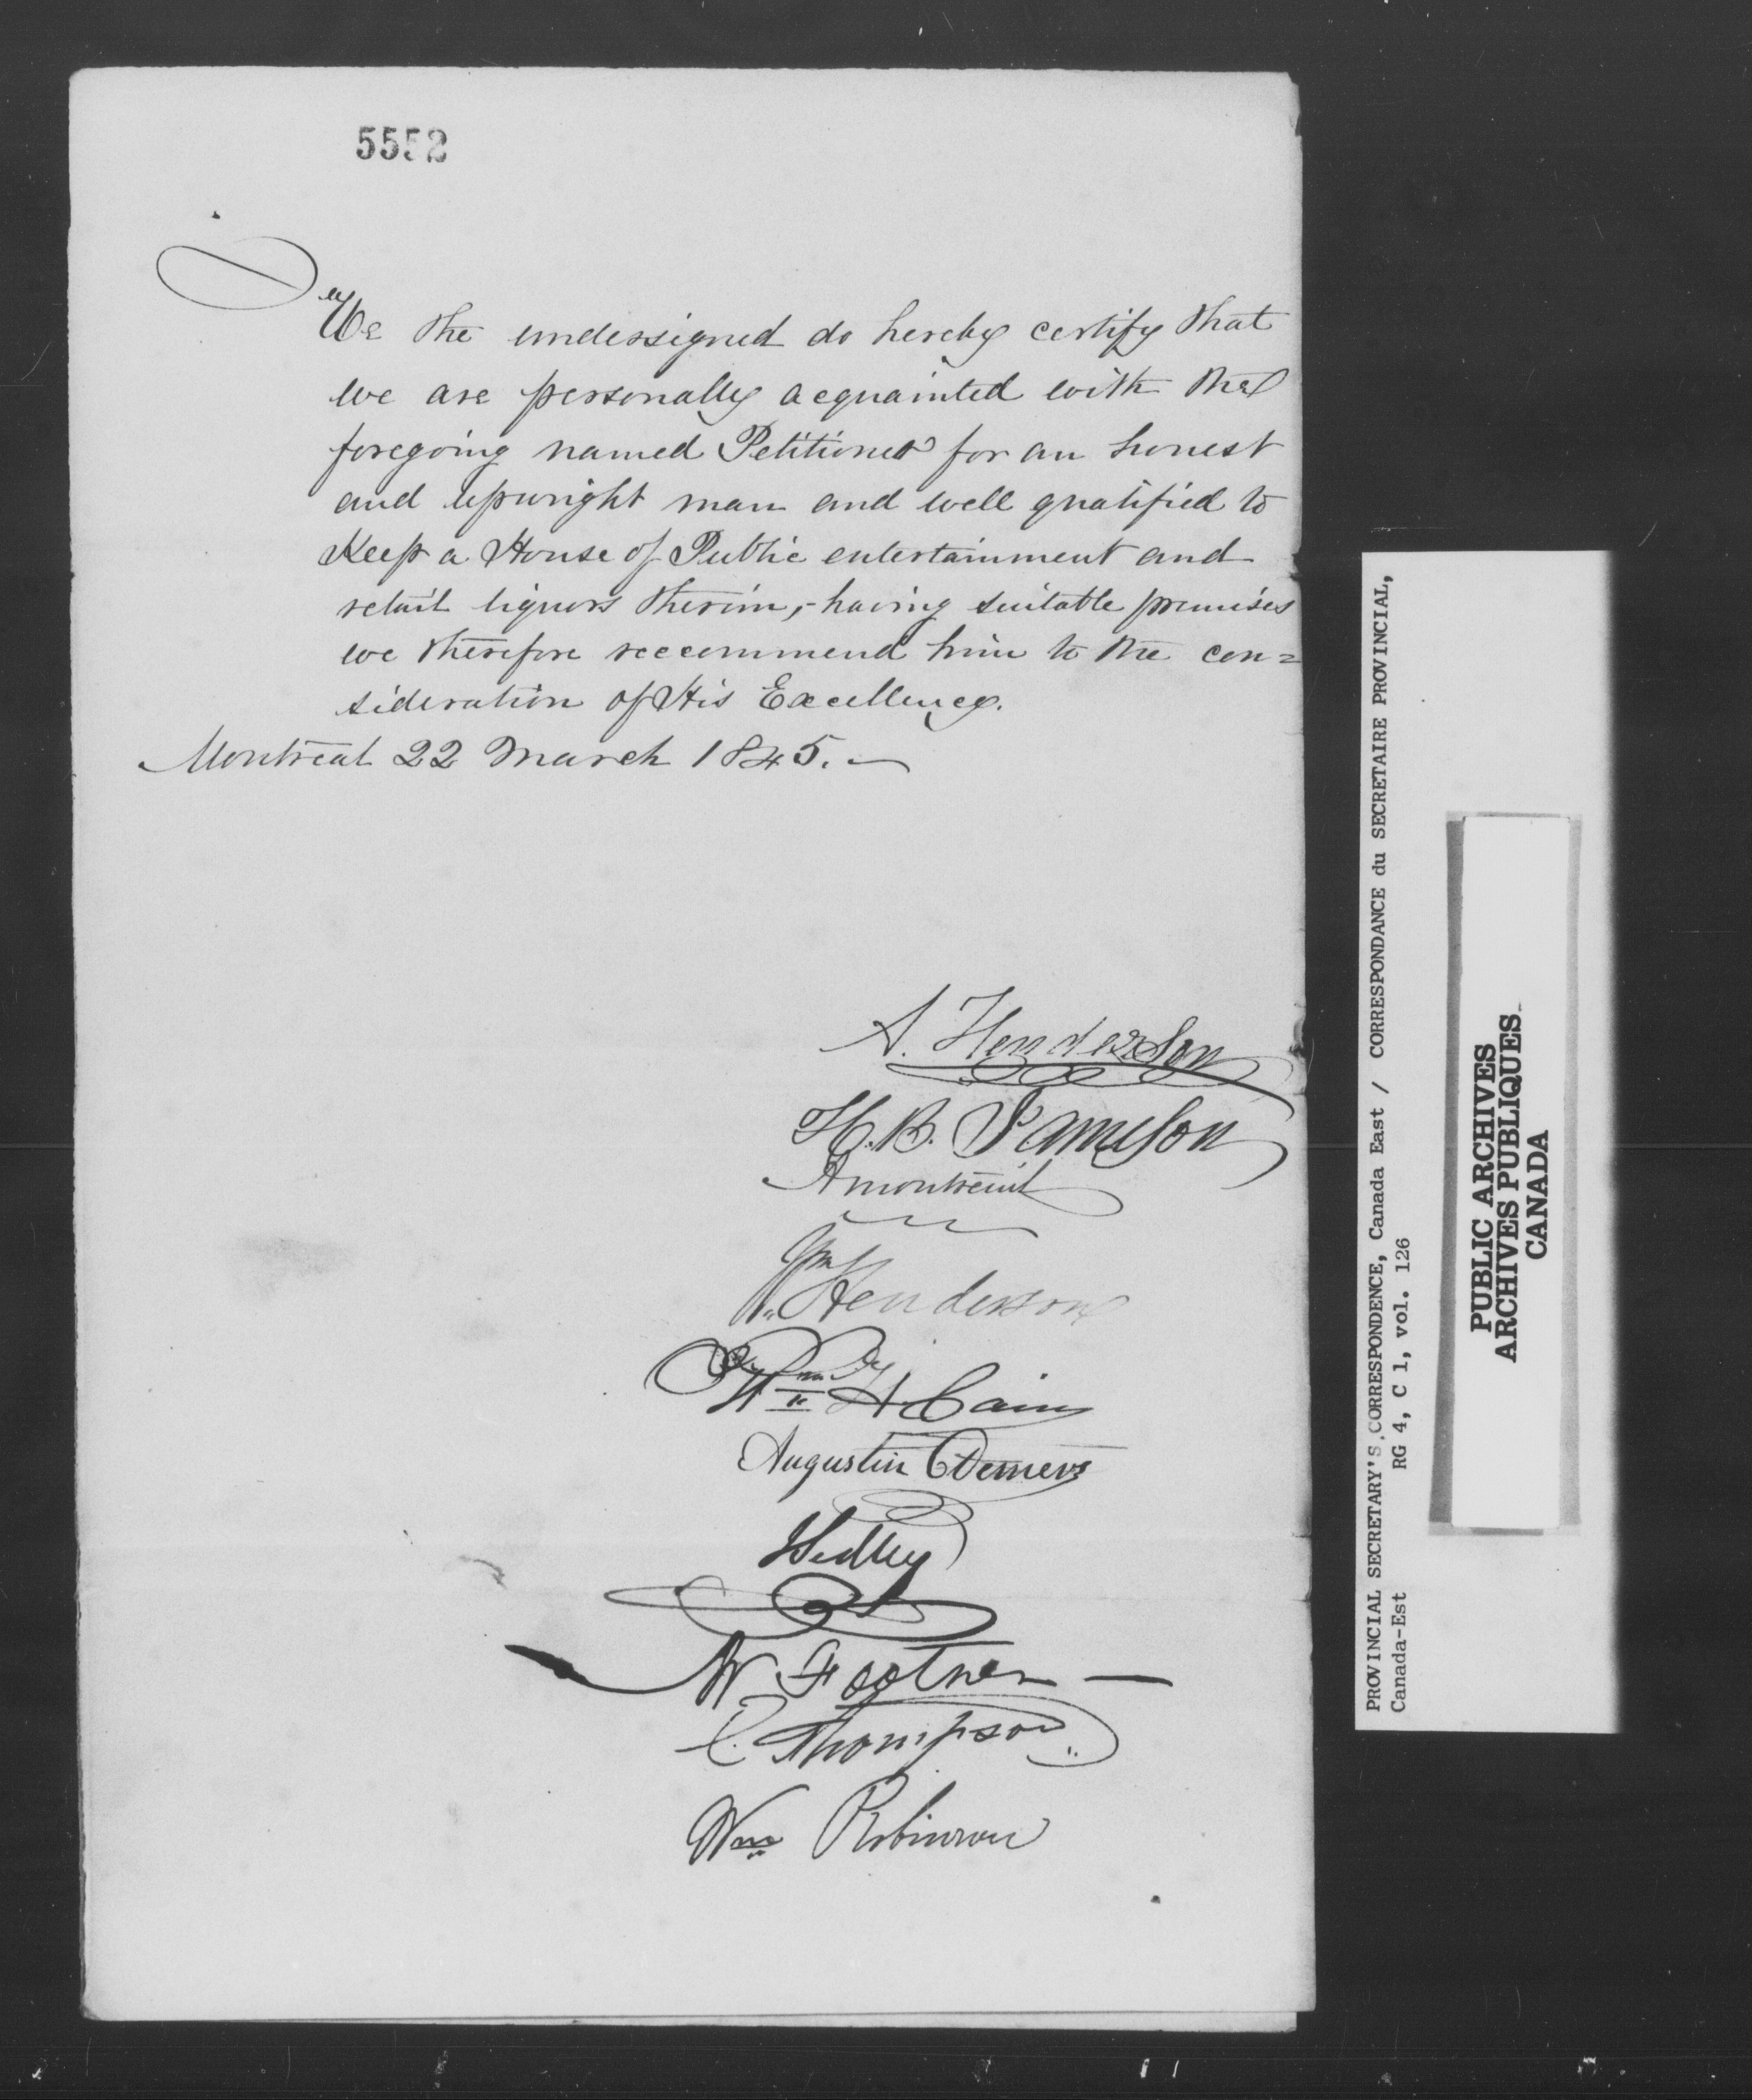 5552
We the undersigned do hereby certify that
we are personally acquainted with the
foregoing named Petitioner for an honest
and upwright man and well qualified to
Keep a House of Public entertainment and
retail liquors therein,- having suitable premises
we therefore reccommend him to the con=
sideration of His Excellency.
Montreal 22 March 1845. —
A. Henderson
H. B. Jameson
A montreuil
Henderson
Wm H. Cain
Augustin Demers
Hedley
W Footner —
Thompson
Wm Robinson
PROVINCIAL SECRETARY'S CORRESPONDENCE, Canada East / CORRESPONDANCE du SECRETAIRE PROVINCIAL,
Canada-Est RG 4, C 1, vol. 126
PUBLIC ARCHIVES
ARCHIVES PUBLIQUES
CANADA